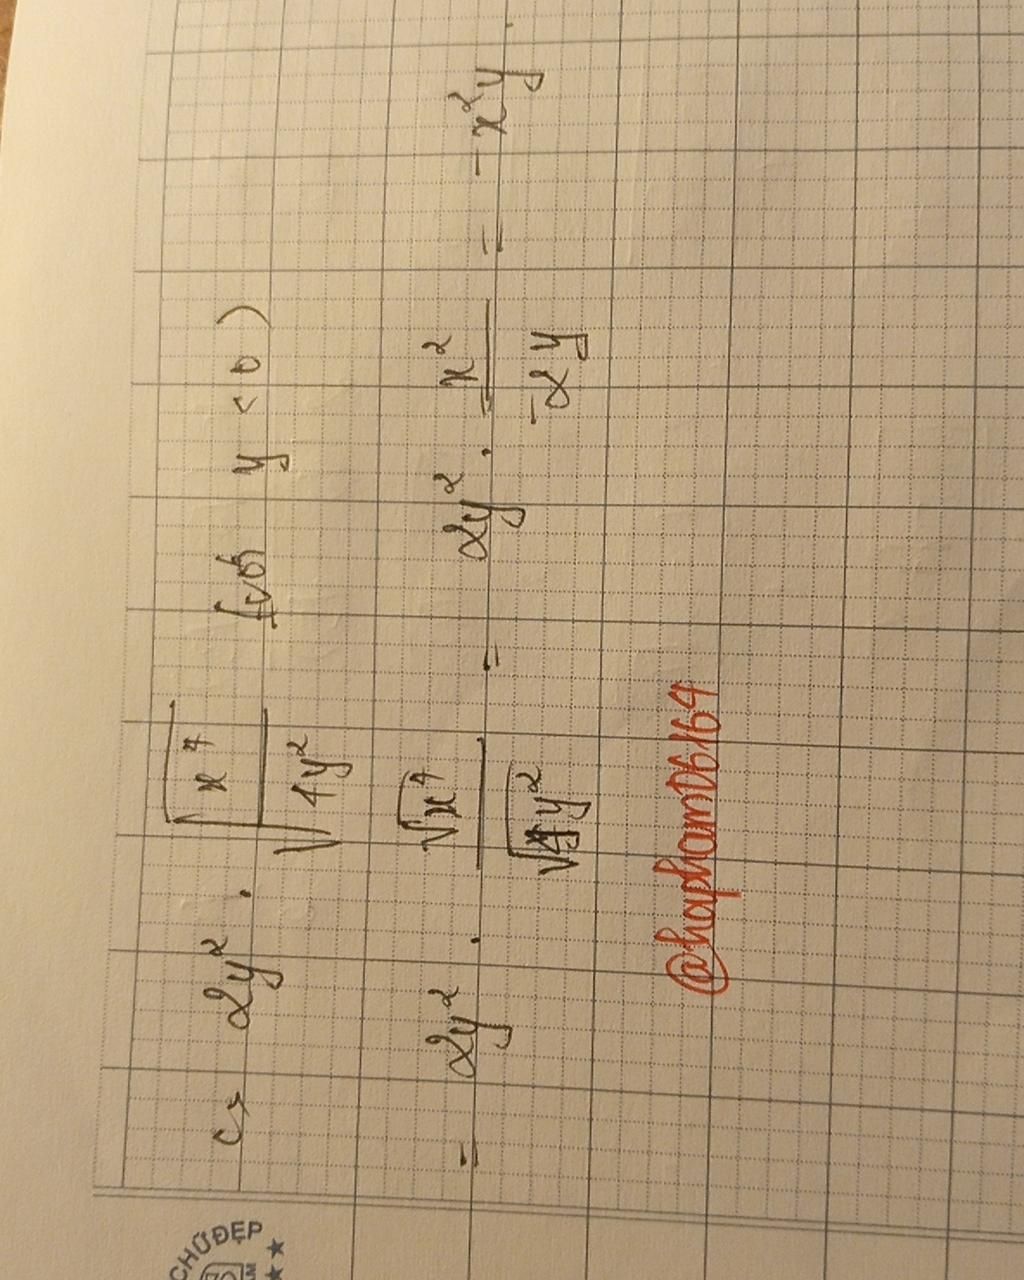 c> 2y² . √(x⁴/4y²) (với y < 0)
= 2y² . √x⁴/√4y² = 2y² . x²/-2y = -x²y.
@hapham06164
CHỮ ĐẸP